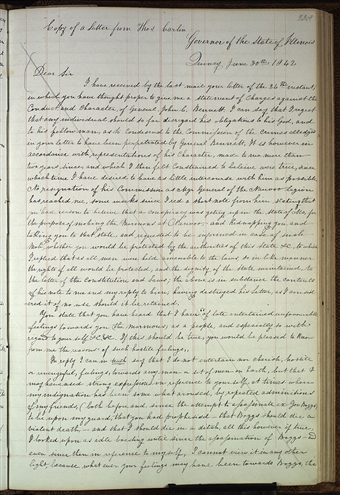 Copy of a Letter from Thos Carlin
Governor of the State of Illinois
Quincy June 30th 1842
Dear Sir
I have received by the last mail your letter of the 24th instant,
in which you have thought proper to give me a statement of Charges against the
Conduct and Character of General John C. Bennett. I can say that I regret
that any individual should so far disregard his obligations to his God, and
to his fellow man, as to condescend to the Commission of the crimes alledged
in your letter to have been perpetrated by General Bennett. It is however in
accordance with representations of his Character, made to me more than
two years since, and which I then felt Constrained to believe were true, since
which time I have desired to have as little intercourse with him as possible.
No resignation of his Commission as Major General of the Nauvoo Legion
has reached me, some weeks since I recd a short note from him stating that
you had reason to believe that a conspiracy was getting up in the State of Mo. for
the purpose of mobbing the Mormons at Nauvoo, and kidnapping you and
taking you to that State, and requested to be informed in case of such
Mob, whether you would be protected by the authorities of this State &c. to which
I replied that as all men were held amenable to the laws so in like manner
the rights of all would be protected, and the dignity of the State maintained, to
the letter of the Constitution and laws, the above is in substance the contents
of his note to me and my reply to him, having destroyed his letter, as I consid-
ered it of no use, should it be retained.
You state that you have heard that I have of late entertained unfavorable
feelings towards you (the Mormons) as a people, and especially so with
regard to yourself &c. &c. If this should be true, you would be pleased to know
from me the reasons of such hostile feelings.
In reply I can in truth say that I do not entertain nor cherish, hostile
or revengeful, feelings, towards any man or set of men on Earth, but that I
may have used strong expressions in reference to yourself, at times when
my indignation has been some what aroused, by repeated admonitions
of my friends, (both before and, since the attempt to assassinate Ex Gov Boggs)
to be upon my guard, that you had prophesied that Boggs should die a
violent death and that I should die in a ditch, all this however if true,
I looked upon as idle boasting until since the assassination of Boggs and
even since then in reference to myself, I cannot view it in any other
light, because what ever your feelings may have been towards Boggs, the